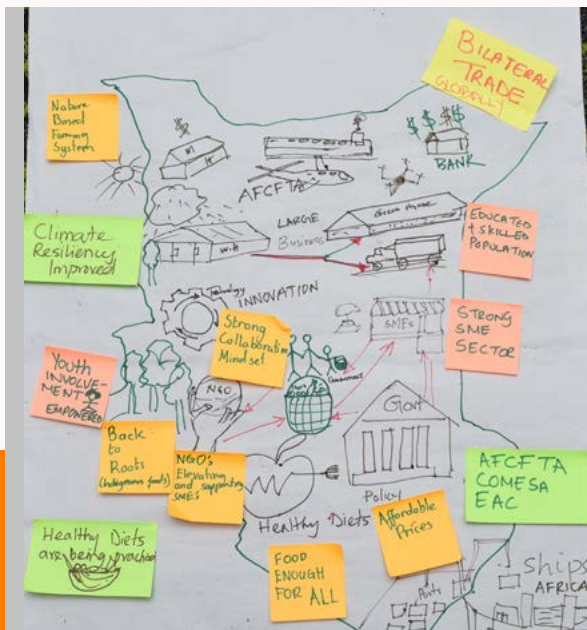 BILATERAL
TRADE
GLOBALLY
Nature
Based
Farming
System
$
$ $ $ $
BANK
AFCFTA
Climate
Resiliency
Improved
LARGE
Business
Green House
W.H
EDUCATED
+ SKILLED
POPULATION
Technology
INNOVATION
SMEs
STRONG
SME
SECTOR
Strong
Collaboration
Mindset
Youth
INVOLVE-
MENT
EMPOWERED
NGO
Govt
Back
to
Roots
(Indigenous foods)
NGO's
Elevating
and supporting
SMEs
AFCFTA
COMESA
EAC
Policy
Healthy Diets
Affordable
Prices
Healthy Diets
are being practiced
FOOD
ENOUGH
FOR ALL
Ports
Ships
AFRICA